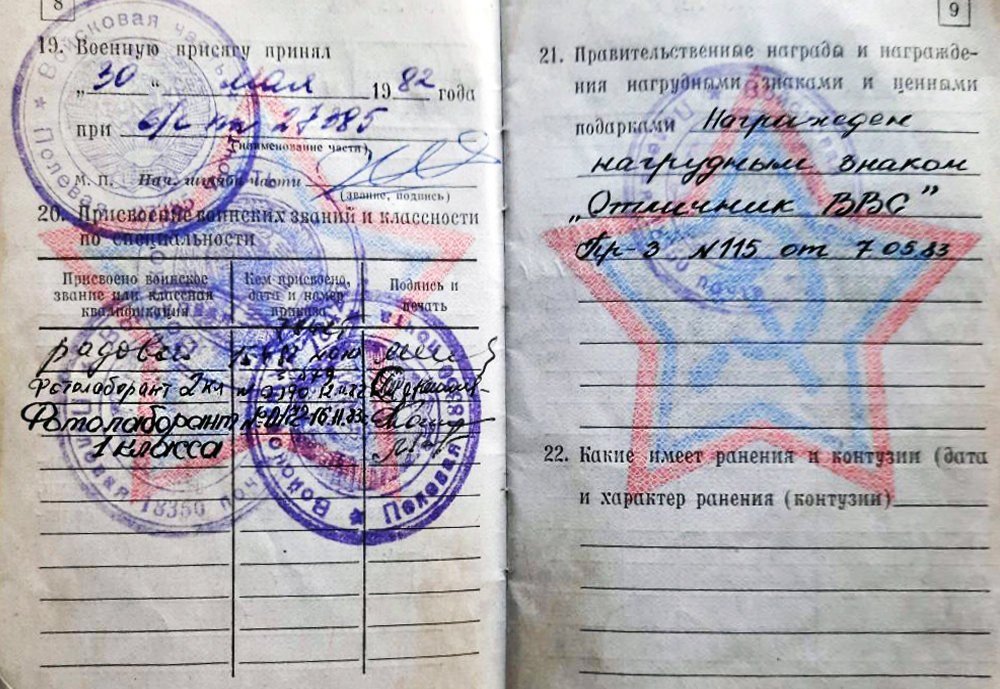 8
19. Военную присягу принял
„30“ мая 1982 года
при в/ч пп 27385
(наименование части)
М. П. Нач. штаба части
(звание, подпись)
20. Присвоение воинских званий и классности
по специальности
Присвоено воинское
звание или классная
квалификация
Кем присвоено,
дата и номер
приказа
Подпись и
печать
рядовой
Фотолаборант 2 кл
Фотолаборант 16.11.83
1 класса
Войсковая часть
Полевая почта
18350
9
21. Правительственные награды и награжде-
ния нагрудными знаками и ценными
подарками Награжден
нагрудным знаком
„Отличник ВВС”
Пр-з N115 от 7 05.83
22. Какие имеет ранения и контузии (дата
и характер ранения (контузии)